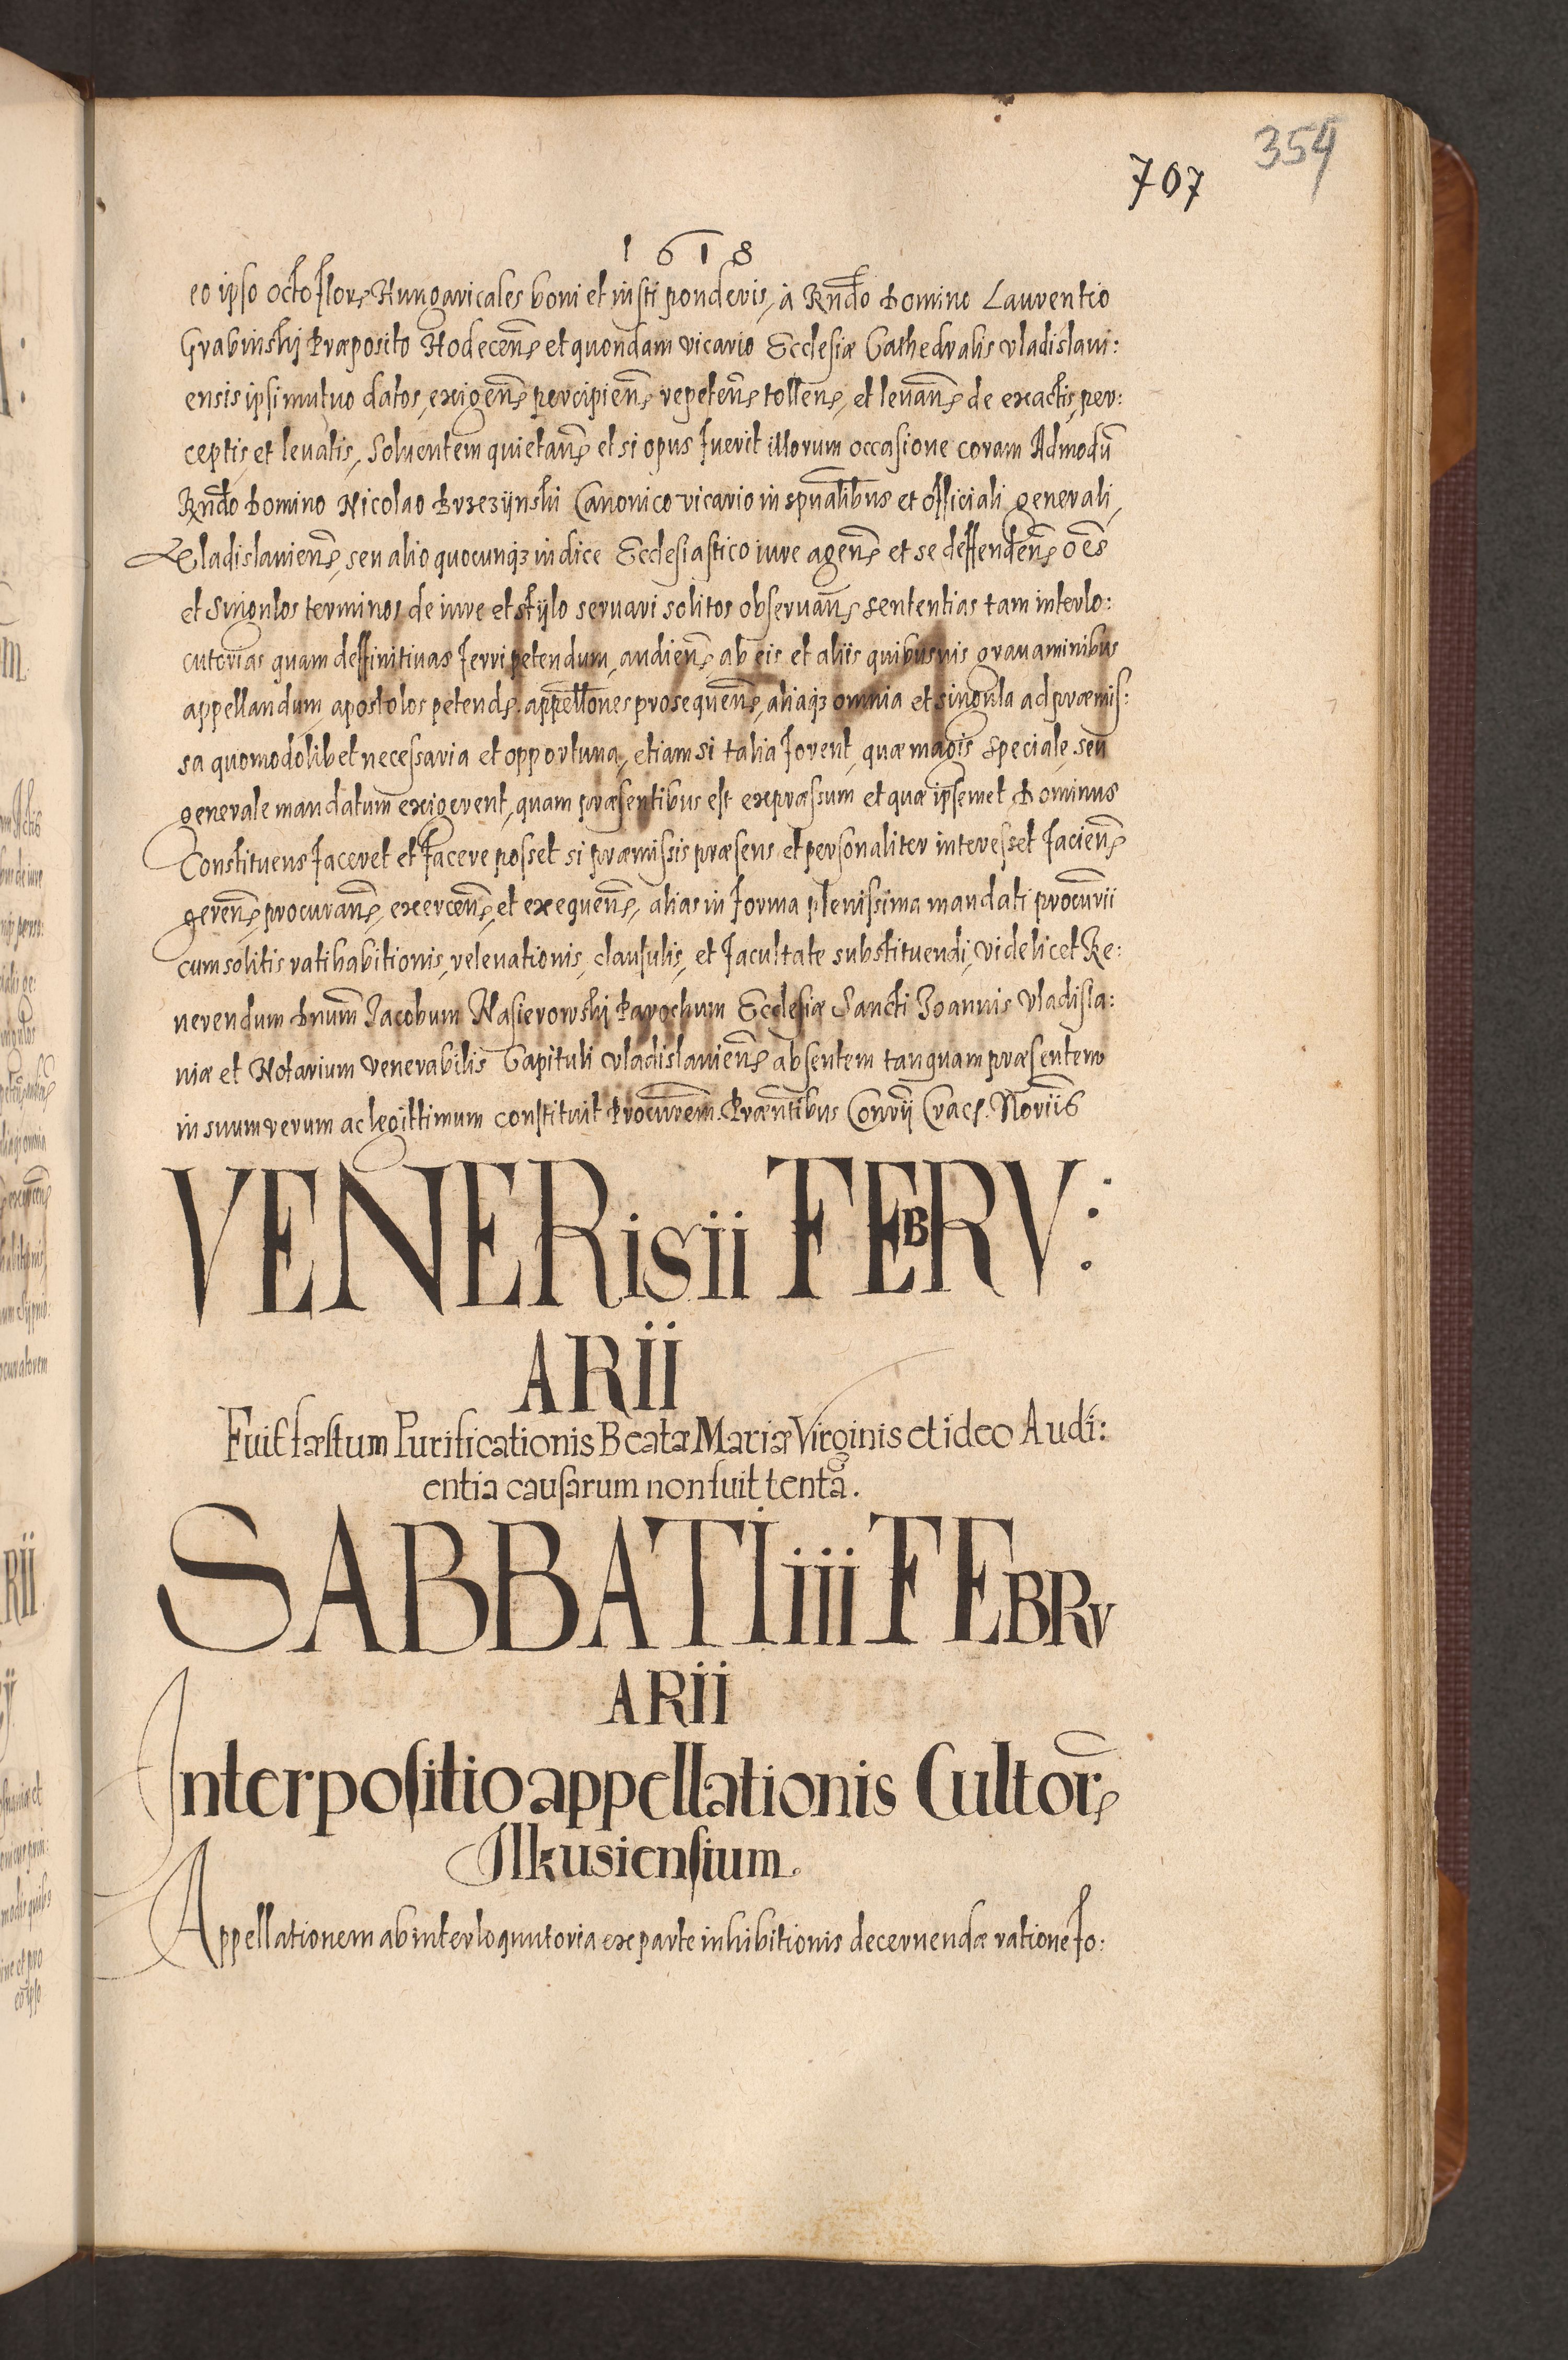 354
707
1618
eo ipso octo flor Hungaricales boni et iusti ponderis, à Rndo Domino Laurentio
Grabinskij Præposito Hodecen et quondam vicario Ecclesiæ Cathedralis Vladislaui:
ensis ipsi mutuo datos, exigen percipien repeten tollen, et leuan de exactis, per:
ceptis, et leuatis, Soluentem quietan et si opus fuerit illorum occasione coram Admodū
Rndo Domino Nicolao Brzezijnski Canonico vicario in spualibus et officiali generali,
Vladislauien, seu alio quocunqz iudice Ecclesiastico iure agen et se deffenden oēs
et Singulos terminos de iure et stijlo seruari solitos obseruan sententias tam interlo:
cutorias quam deffinitiuas ferri petendum, audien ab eis et aliis quibusuis grauaminibus
appellandum apostolos petend appellones prosequen, aliaqz omnia et singula ad præmis:
sa quomodolibet necessaria et opportuna, etiam si talia forent, quæ magis speciale, seu
generale mandatum exigerent, quam præsentibus est expræssum et quæ ipsemet Dominus
Constituens faceret et facere posset si præmissis præsens et personaliter interesset facien
geren procuran, exercen, et exequen, alias in forma plenissima mandati procurii
cum solitis ratihabitionis, releuationis, clausulis, et facultate substituendi, videlicet Re:
uerendum Dnum Jacobum Nasierowskij Parochum Ecclesiæ Sancti Joannis Vladisla:
uiæ et Notarium Venerabilis Capituli Vladislauien absentem tanquam præsentem
in suum verum ac legittimum constituit Procurem. Præntibus Convij Crac. Noriis
VENERis ii FEBRV:
ARii
Fuit fæstum Purificationis Beatæ Mariæ Virginis et ideo Audi:
entia causarum non fuit tenta.
SABBATI iii FEBRV
ARii
Interpositio appellationis Cultor
Ilkusiensium.
Appellationem ab interloquutoria ex parte inhibitionis decernendæ ratione fo: